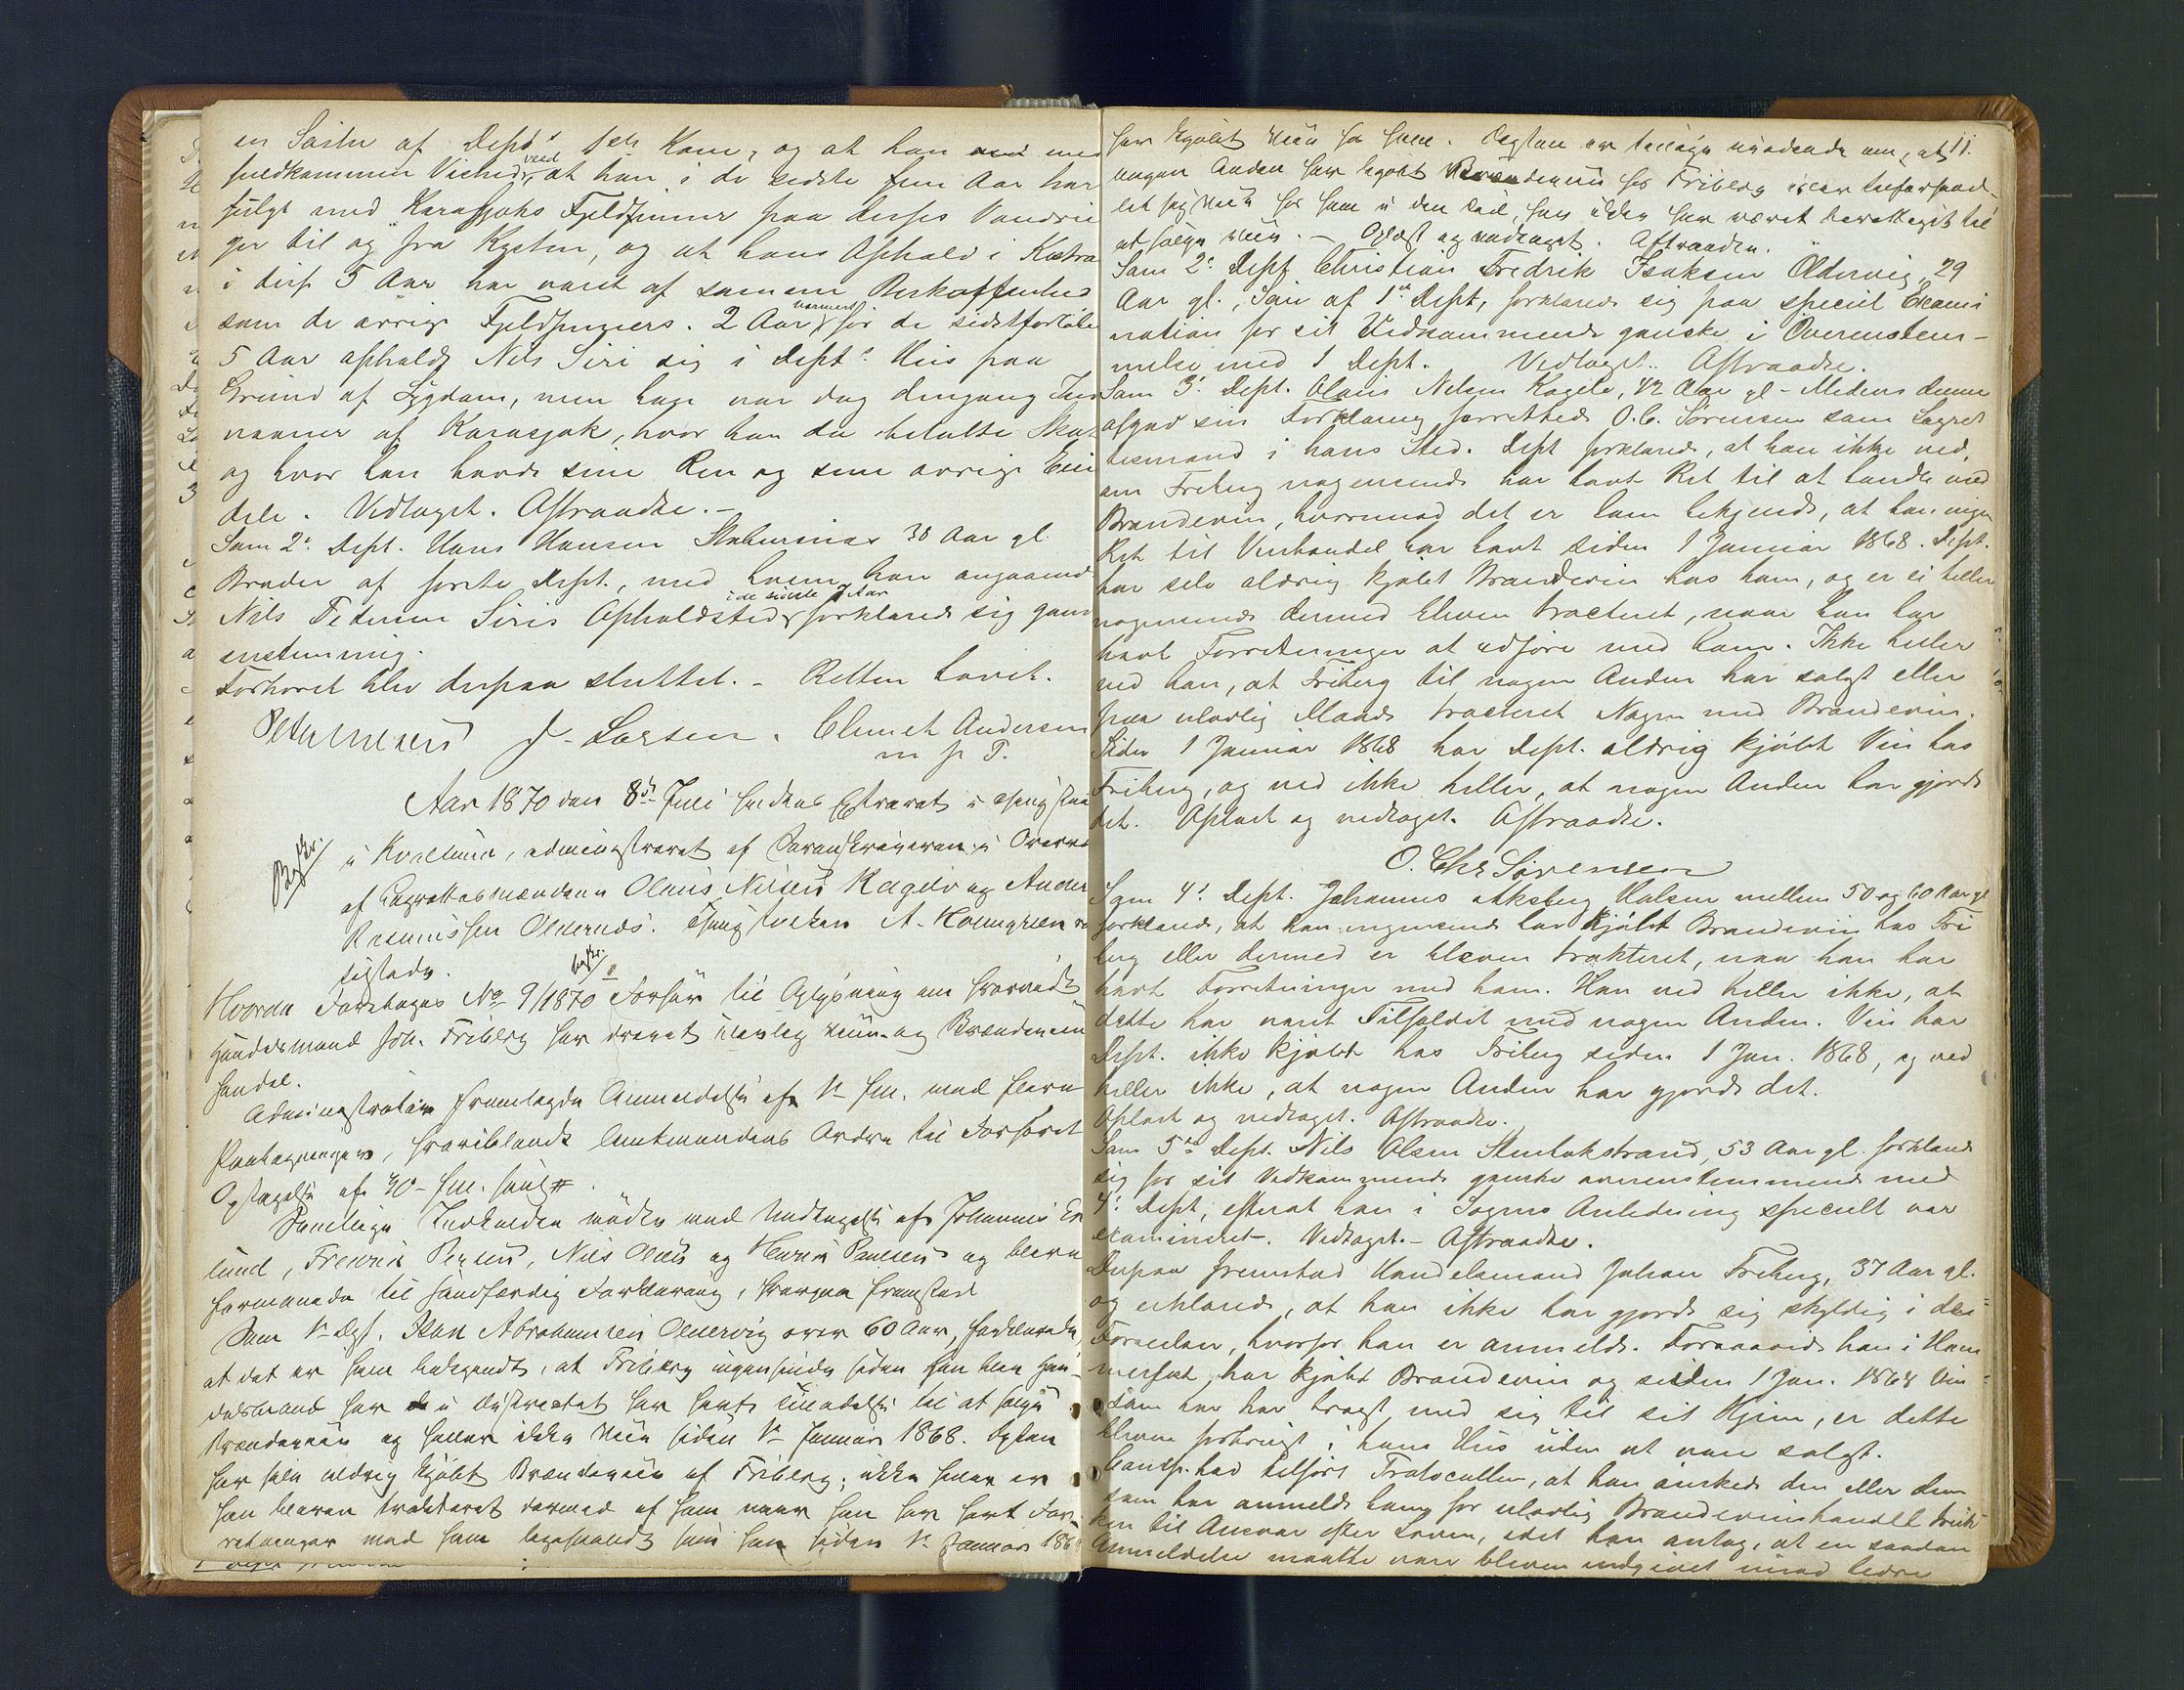 en Søster af Dept's Kone, og at han med
fuldkommen Vished ved, at han i de sidste fem Aar har
fulgt med Karasjoks Fjeldfinner paa deres Vandrin
ger til og fra Kysten, og at hans Ophold i Kistra
i disse 5 Aar har været af samme Beskaffenhed
som de øvrige Fjeldfinners. 2 Aar nærmest før de sidstforløbne
5 Aar opholdt Nils Siri sig i Dept's Huus paa
Grund af Sygdom, men han var dog dengang Ind
vaaner af Karasjok, hvor han da betalte Skat
og hvor han havde sine Ren og sine øvrige Eien
dele. Vedtaget. Aftraadte. -
Som 2. Dept. Hans Hansen 38 Aar gl.
Broder af første Dept., med hvem han angaaende
Nils Pedersen Siris Opholdsted i de sidste 7 Aar forklarede sig gans
enstemmig.
Forhøret blev derpaa sluttet. - Retten hævet.
J. Larsen. Clemet Andersen
m p P.
Aar 1870 den 8de Juli holdtes Extraret i Thingstuen
Bgk kr.
i Kvalsund, administreret af Sorenskriveren i Overvær
af Lagrettesmændene Olaus Nilsen Kagelv og Ander
Rasmussen Oldernæs. Thingtolken A. Holmgreen va
tilstede.
Hvorda Foretoges No 9/1870 Forhør til Oplysning om hvorvidt
Handelsmand Joh. Friberg har drevet ulovlig Viin- og Brændeviin
handel.
Administrator fremlagde Anmeldelse af 1 f.m. med flere
Paategninger, hvoriblandt Amtmandens Ordre til Forhørets
Optagelse af 30 f.m.
Samtlige Indkaldte mødte med Undtagelse af Johannes Ek
lund, Fredrik Persen, Nils Olsen og Henrik Paulsen og bleve
formanede til sandfærdig Forklaring, hvorpaa fremstod
Som 1 Dept. Isak Abrahamsen Oldervig over 60 Aar, forklarede
at det er ham bekjendt, at Friberg ingensinde siden han blev Han-
delsmand her i Distriktet har havt Tilladelse til at sælge
Brændeviin og heller ikke Viin siden 1 Januar 1868. Depten
har selv aldrig kjøbt Brændeviin af Friberg; ikke heller er
han bleven trakteret dermed af ham naar han har havt For-
retninger med ham ligesaalidt som han siden 1 Januar 1868
11.
har kjøbt Viin hos ham. Depten er tillige uvidende om, at
nogen Anden har kjøbt Brændeviin hos Friberg eller
Viin hos ham i den Tid, han ikke har været berettiget til
at sælge Viin. - Oplæst og vedtaget. Aftraadte.
Som 2. Dept Christian Fredrik Isaksen Oldervig, 29
Aar gl., Søn af 1ste Dept, forklarede sig paa speciel Exami
nation for sit Vedkommende ganske i Overenstem-
melse med 1 Dept. Vedtaget. Aftraadte.
Som 3. Dept. Olaus Nilsen Kagelv, 42 Aar gl - Medens denne
afgav sin Forklaring forrettede O. C. Sørensen som Lagret
tesmand i hans Sted. Dept forklarede, at han ikke ved,
om Friberg nogensinde har havt Ret til at handle med
Brændeviin, hvorimod det er ham bekjendt, at han ingen
Ret til Vinhandel har havt siden 1 Januar 1868. Dept.
har selv aldrig kjøbt Brændevin hos ham, og er ei heller
nogensinde dermed bleven tracteret, naar han har
havt Forretninger at udføre med ham. Ikke heller
ved han, at Friberg til nogen Anden har solgt eller
paa ulovlig Maade tracteret Nogen med Brændevin.
Siden 1 Januar 1868 har Dept. aldrig kjøbt Vin hos
Friberg, og ved ikke heller, at nogen Anden har gjordt
det. Oplæst og vedtaget. Aftraadte.
O. Chr Sørensen
Som 4. Dept. Johannes Halsen mellem 50 og 60 Aar gl
forklarede, at han ingensinde har kjøbt Brændeviin hos Fri
berg eller dermed er bleven trakteret, naar han har
havt Forretninger med ham. Han ved heller ikke, at
dette har været Tilfældet med nogen Anden. Vin har
Dept. ikke kjøbt hos Friberg siden 1 Jan. 1868, og ved
heller ikke, at nogen Anden har gjordt det.
Oplæst og vedtaget. Aftraadte.
Som 5te Dept. Nils Olsen 53 Aar gl. forklarede
sig for sit Vedkommende ganske overenstemmende med
4. Dept, efterat han i Sagens Anledning specielt var
examineret. Vedtaget. - Aftraadte.
Derpaa fremstod Handelsmand Johan Friberg, 37 Aar gl.
og erklærede, at han ikke har gjordt sig skyldig i den
Forseelse, hvorfor han er anmeldt. Forsaavidt han i Ham
merfest har kjøbt Brændevin og siden 1 Jan. 1868 Vin
som han har bragt med sig til sit Hjem, er dette
bleven forbrugt i hans Huus uden at være solgt.
Comp. bad tilført Protocollen, at han ønskede den eller dem
som har anmeldt ham for ulovlig Brændevinshandel truk
ken til Ansvar efter Loven, idet han antog, at en saadan
Anmeldelse maatte være bleven indgivet imod bedre